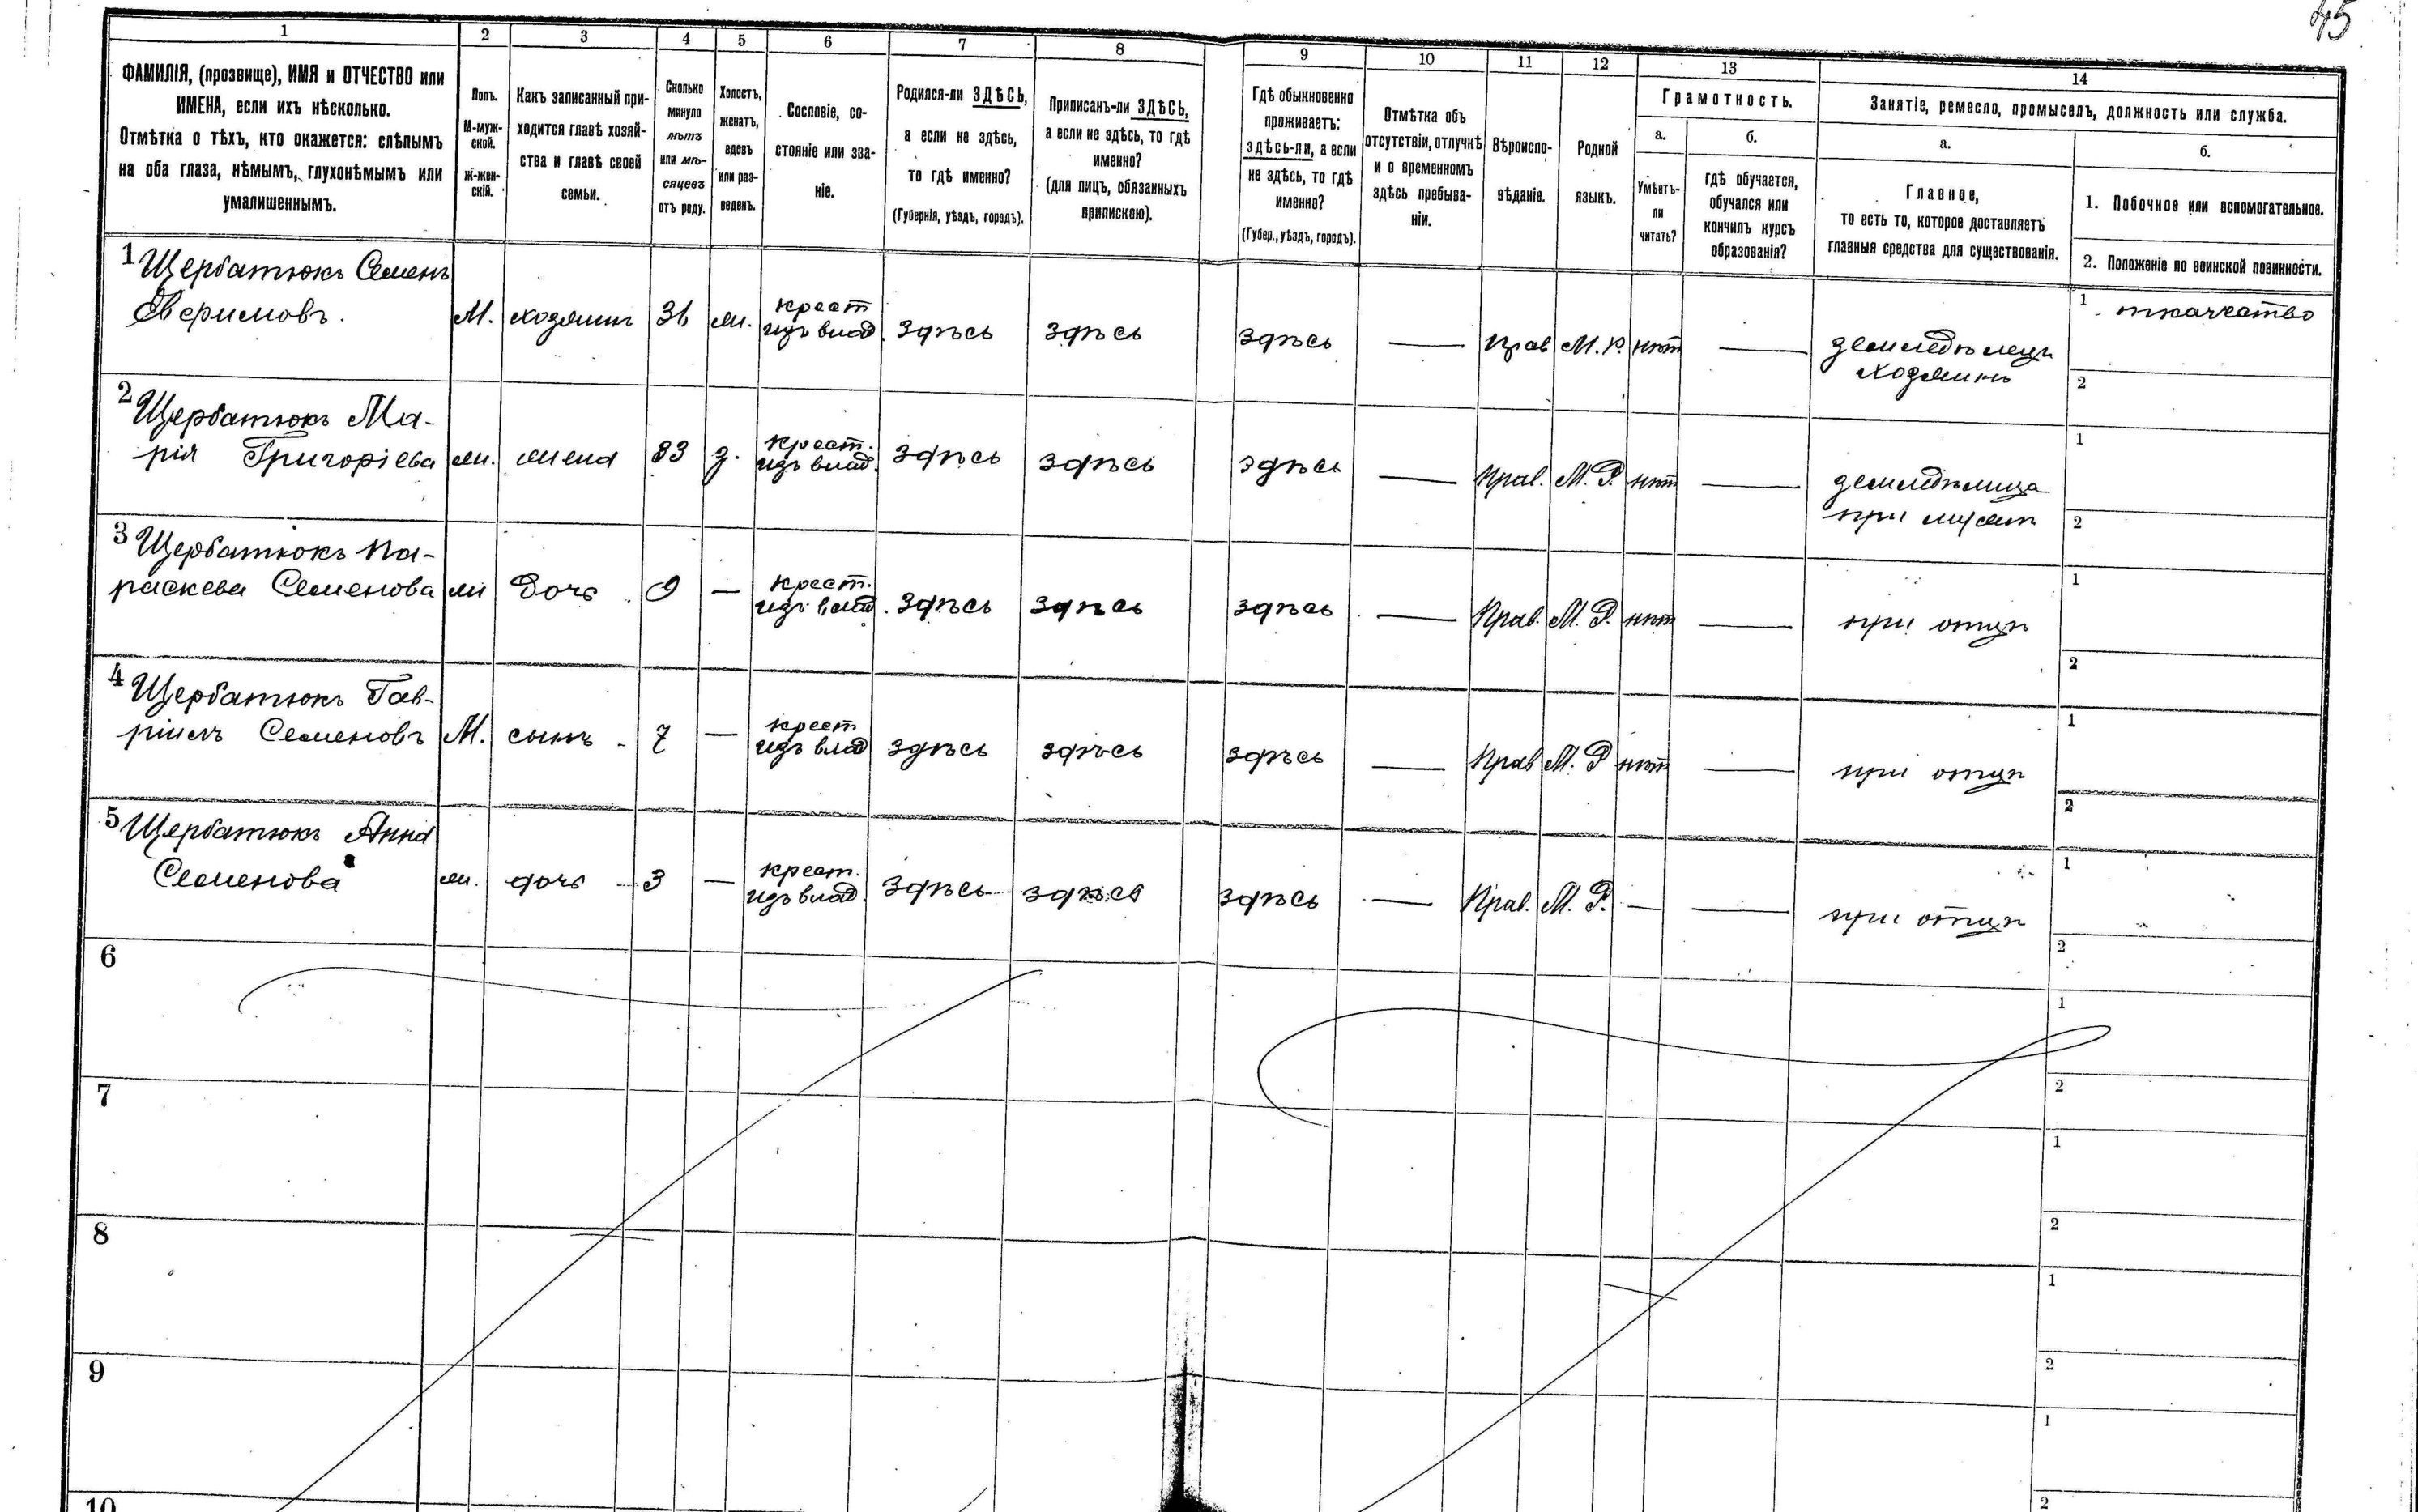 45
1 2 3 4 5 6 7 8 9 10 11 12 13 14
ФАМИЛІЯ, (прозвище), ИМЯ и ОТЧЕСТВО или
ИМЕНА, если ихъ нѣсколько.
Отмѣтка о тѣхъ, кто окажется: слѣпымъ
на оба глаза, нѣмымъ, глухонѣмымъ или
умалишеннымъ.
Полъ.
М-муж-
ской.
Ж-жен-
скій.
Какъ записанный при-
ходится главѣ хозяй-
ства и главѣ своей
семьи.
Сколько
минуло
лѣтъ
или мѣ-
сяцевъ
отъ роду.
Холостъ,
женатъ,
вдовъ
или раз-
веденъ.
Сословіе, со-
стояніе или зва-
ніе.
Родился-ли ЗДѢСЬ,
а если не здѣсь,
то гдѣ именно?
(Губернія, уѣздъ, городъ).
Приписанъ-ли ЗДѢСЬ,
а если не здѣсь, то гдѣ
именно?
(для лицъ, обязанныхъ
припискою).
Гдѣ обыкновенно
проживаетъ:
здѣсь-ли, а если
не здѣсь, то гдѣ
именно?
(Губер., уѣздъ, городъ).
Отмѣтка объ
отсутствіи, отлучкѣ
и о временномъ
здѣсь пребыва-
ніи.
Вѣроиспо-
вѣданіе.
Родной
языкъ.
Грамотность.
а.
Умѣетъ-
ли
читать?
б.
гдѣ обучается,
обучался или
кончилъ курсъ
образованія?
Занятіе, ремесло, промыселъ, должность или служба.
а.
Главное,
то есть то, которое доставляетъ
главныя средства для существованія.
б.
1. Побочное или вспомогательное.
2. Положеніе по воинской повинности.
1 Щербатюкъ Семенъ
М. хозяинъ 36 ж. крест
изъ влад. здѣсь здѣсь здѣсь — Прав М. Р. нѣт — земледѣлецъ
хозяинъ
1 ткачество
2
2 Щербатюкъ Ма-
рія Григоріева ж. жена 33 з. крест.
изъ влад. здѣсь здѣсь здѣсь — Прав. М. Р. нѣт —
при мужѣ
1
2
3 Щербатюкъ Па-
раскева Семенова ж Дочь 9 — крест.
изъ влад. здѣсь здѣсь здѣсь — Прав. М. Р. нѣт — при отцѣ
1
2
4 Щербатюкъ Гав-
ріилъ Семеновъ М. сынъ 7 — крест
изъ влад здѣсь здѣсь здѣсь — Прав М. Р нѣт — при отцѣ
1
2
5 Щербатюкъ Анна
Семенова ж. дочь 3 — крест.
изъ влад. здѣсь здѣсь здѣсь — Прав. М. Р. — — при отцѣ
1
2
6
1
2
7
1
2
8
1
2
9
1
2
10